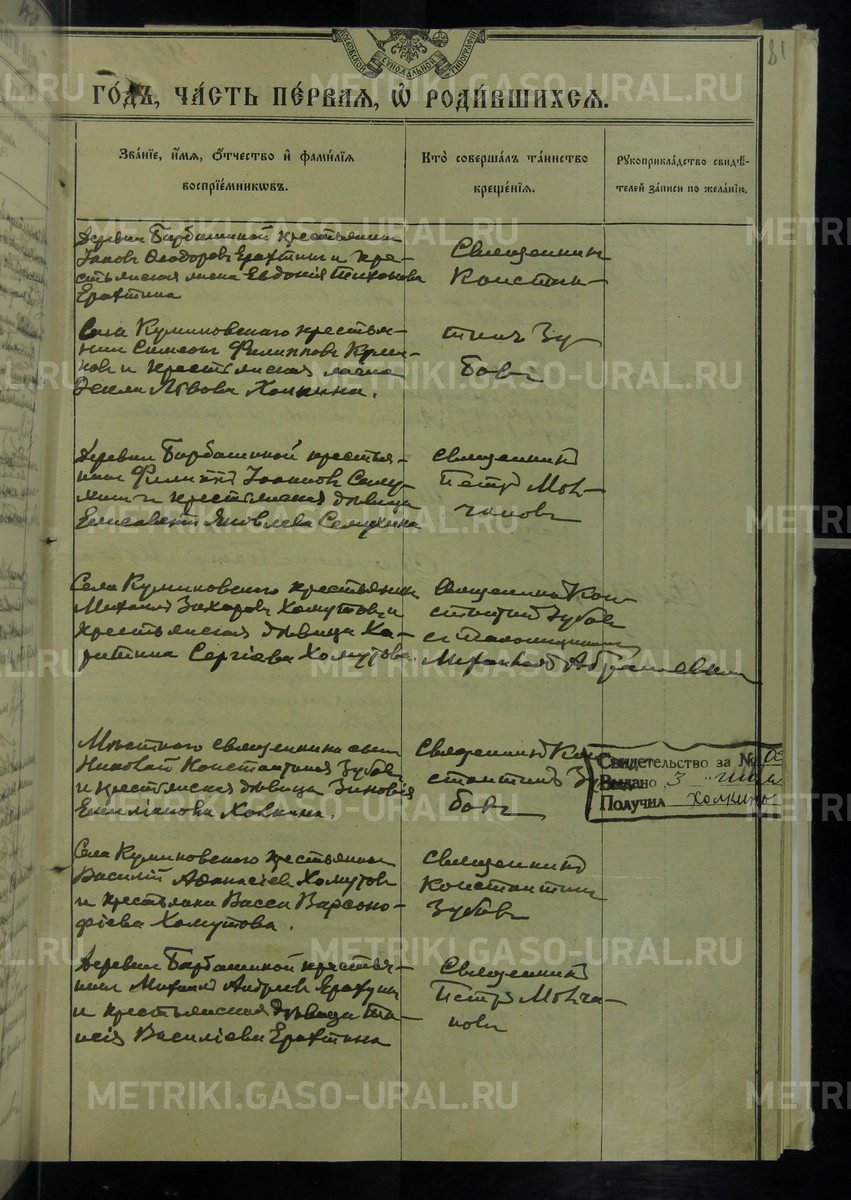 МОСКОВСКОЙ СУНОДАЛЬНОЙ ТИПОГРАФІИ
81
ГО́ДЪ, ЧА́СТЬ ПЕ́РВАѦ, Ѡ҆ РОДИ́ВШИХСѦ.
Зва́нїе, и҆́мѧ, ѻ҆́тчество и҆ фами́лїѧ
воспрїе́мникѡвъ.
Кто̀ соверша́лъ та́инство
креще́нїѧ.
Рꙋкоприкла́дство свидѣ́-
телей за́писи по жела́нїю.
Деревни Барбашиной крестьянин
Іаковъ Ѳеодоровъ Ерахтин и кре-
стьянская жена Евдокія Тихонова
Ерахтина
Священник
Констан-
тинъ Зу-
бовъ
Села Куминовскаго крестья-
нин Симеонъ Филипповъ Куми-
нов и крестьянская жена
Львова Холкина.
Деревни Барбашиной крестья-
нин Филиппъ Іоанновъ Сему-
хин и крестьянская дѣвица
Елисавета Яковлева Семухина
Священникъ
Петръ Мол-
чановъ
Села Куминовскаго крестьянин
Михаилъ Захаров Хомутовъ и
крестьянская дѣвица Ха-
ритина Сергіева Хомутова.
Священник Кон-
стантин Зубов
с Псаломщиком
Михаилом
Мѣстнаго священника сын
Николай Константинов Зубов
и крестьянская дѣвица Зиновія
Емиліанова Холкина.
Священникъ Кон-
стантинъ Зу-
бовъ
Свидетельство за №
Выдано 3
Получил Холкина
Села Куминовскаго крестьянин
Василій Афанасіевъ Хомутов
и крестьянка Васса Варсоно-
фіева Хомутова.
Священникъ
Константин
Зубовъ
Деревни Барбашиной крестья-
нин Михаилъ Андреев
и крестьянская дѣвица Таи-
сія Василіева Ерахтина
Священникъ
Петръ Молча-
новъ
METRIKI.GASO-URAL.RU